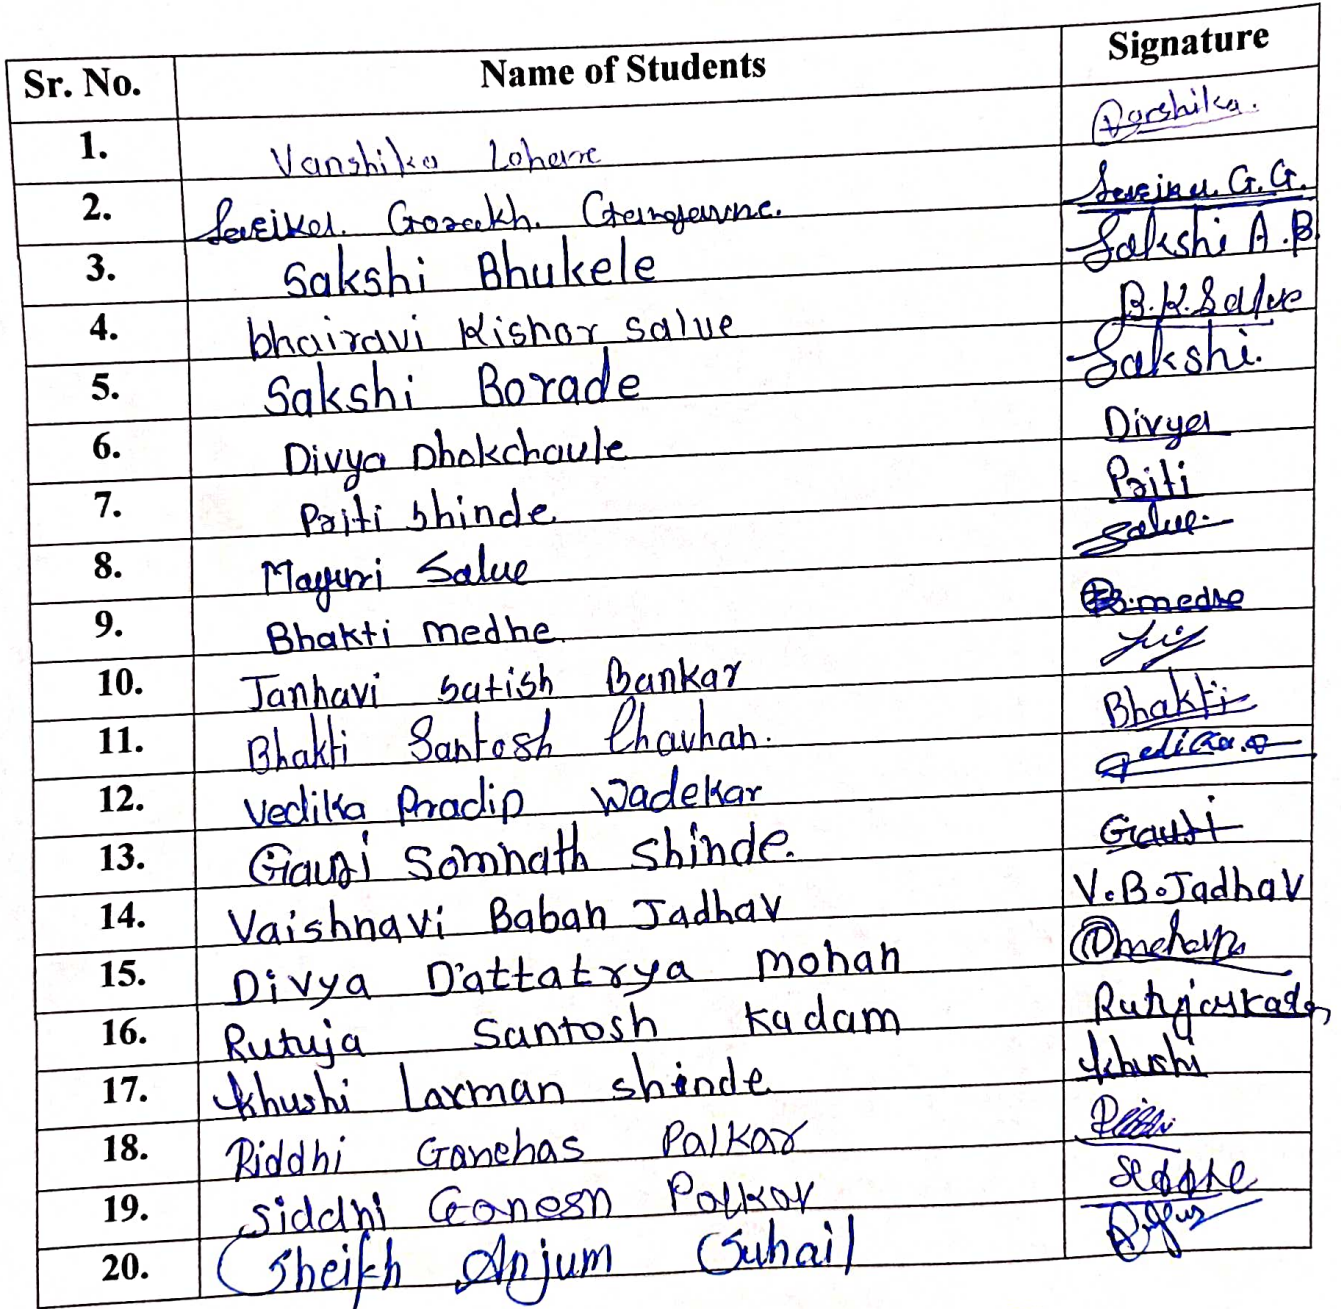 Sr. No. Name of Students Signature
1. Vanshika Lohare Varshika.
2. Gorakh. G.G.
3. Sakshi Bhukele Sakshi A.B.
4. bhairavi Kishor salve B.K.Salve
5. Sakshi Borade Sakshi.
6. Divya Dhokchaule Divya
7. Priti Shinde Priti
8. Mayuri Salve Salve.
9. Bhakti medhe B.medhe
10. Janhavi Satish Bankar
11. Bhakti Santosh Chavhan. Bhakti
12. vedika Pradip Wadekar
13. Gauri Somnath Shinde. Gauri
14. Vaishnavi Baban Jadhav V.B.Jadhav
15. Divya Dattatrya mohan
16. Rutuja Santosh kadam
17. Khushi Laxman shinde Khushi
18. Riddhi Ganehas Palkar
19. Siddhi Ganesh Palkar
20. Sheikh Anjum Suhail